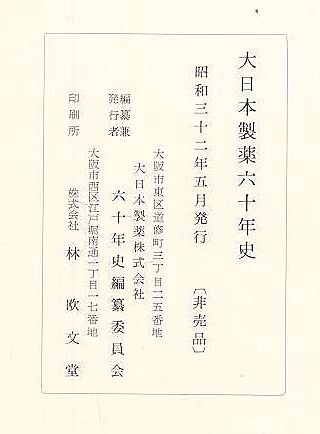 大日本製薬六十年史
昭和三十二年五月発行
〔非売品〕
編纂兼
発行者
大阪市東区道修町三丁目二五番地
大日本製薬株式会社
六十年史編纂委員会
印刷所
大阪市西区江戸堀南通一丁目一七番地
株式会社
林欧文堂